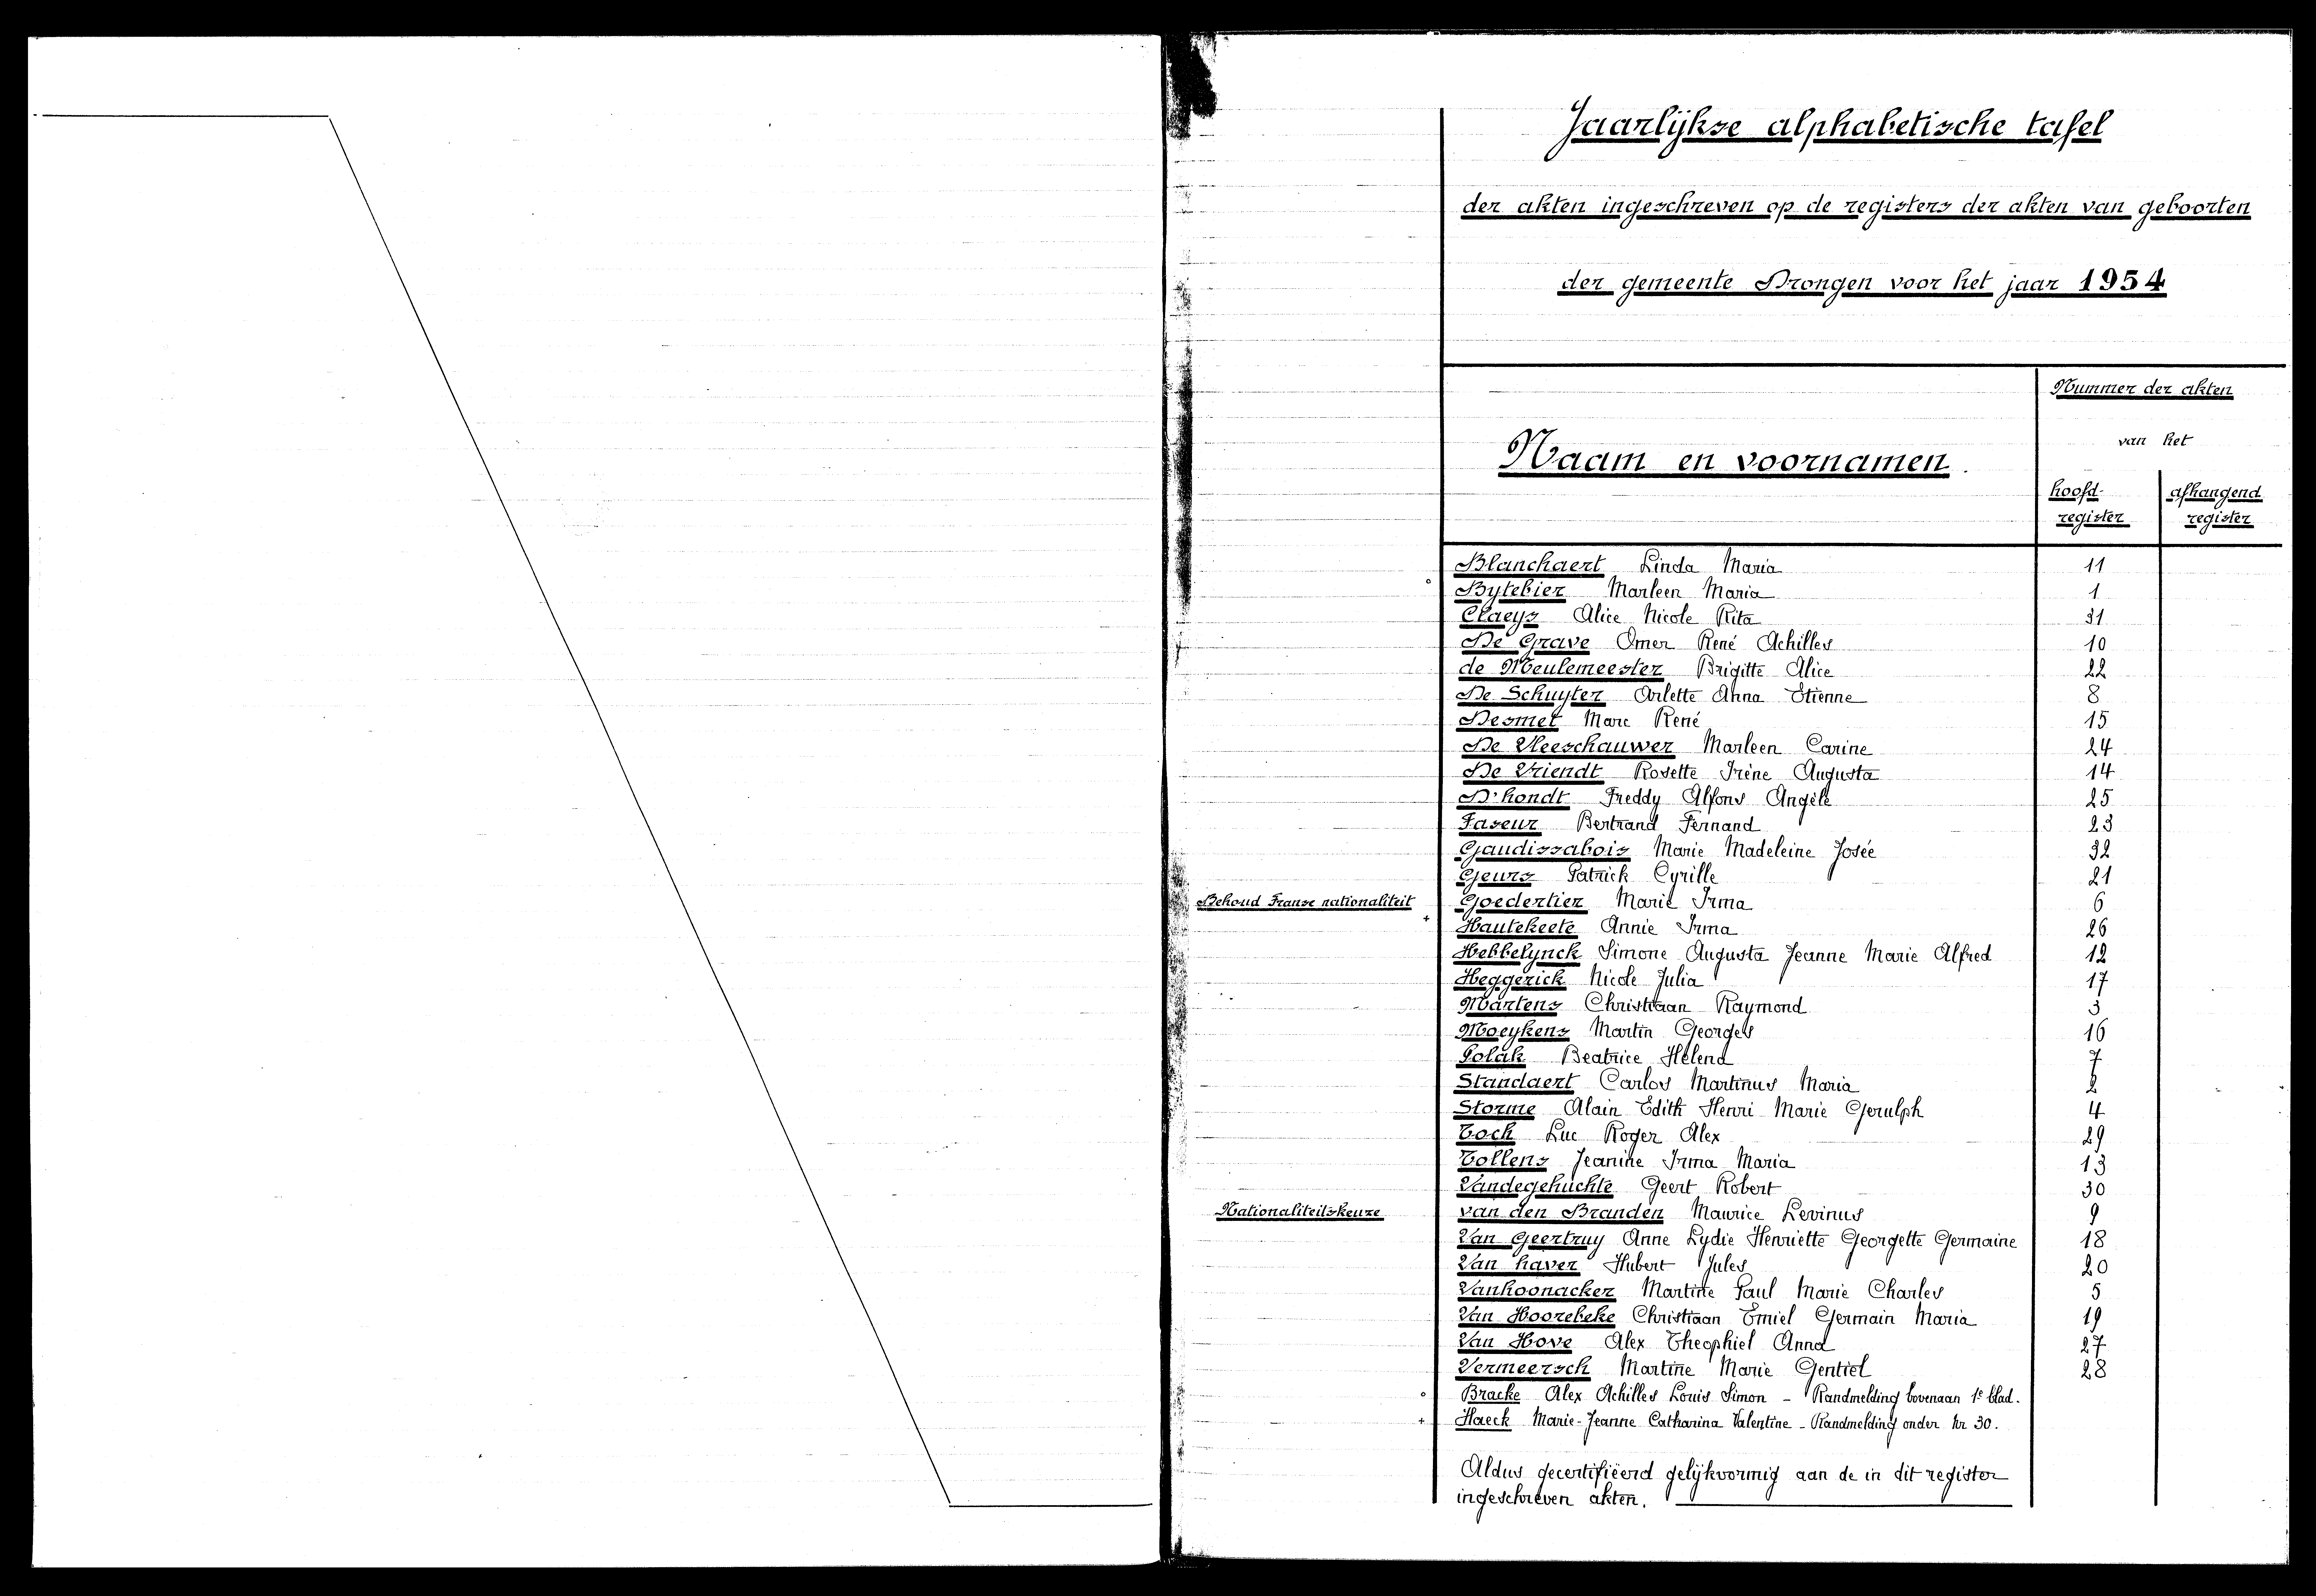 Jaarlijkse alphabetische tafel
der akten ingeschreven op de registers der akten van geboorten
der gemeente Drongen voor het jaar 1954
Nummer der akten
van het
Naam en voornamen.
hoofd- afhangend
register register
Blanchaert Linda Maria 11
° Bytebier Marleen Maria 1
Claeys Alice Nicole Rita 31
De Grave Omer René Achilles 10
de Meulemeester Brigitte Alice 22
De Schuyter Arlette Anna Etienne 8
Desmet Marc René 15
De Vleeschauwer Marleen Carine 24
De Vriendt Rosette Irène Augusta 14
D'hondt Freddy Alfons Angèle 25
Faseur Bertrand Fernand 23
Gaudissabois Marie Madeleine Josée 32
Geurs Patrick Cyrille 21
Behoud Franse nationaliteit Goedertier Marie Irma 6
+ Hautekeete Annie Irma 26
Hebbelynck Simone Augusta Jeanne Marie Alfred 12
Heggerick Nicole Julia 17
Martens Christiaan Raymond 3
Moeykens Martin Georges 16
Polak Beatrice Helena 7
Standaert Carlos Martinus Maria 2
Storme Alain Edith Henri Marie Gerulph 4
Tock Luc Roger Alex 29
Tollens Jeanine Irma Maria 13
Vandegehuchte Geert Robert 30
Nationaliteitskeuze van den Branden Maurice Levinus 9
Van Geertruy Anne Lydie Henriette Georgette Germaine 18
Van haver Hubert Jules 20
Vanhoonacker Martine Paul Marie Charles 5
Van Hoorebeke Christiaan Emiel Germain Maria 19
Van Hove Alex Theophiel Anna 27
Vermeersch Martine Marie Gentiel 28
° Bracke Alex Achilles Louis Simon - Randmelding bovenaan 1e blad.
+ Haeck Marie-Jeanne Catharina Valentine - Randmelding onder Nr 30.
Aldus gecertifiëerd gelijkvormig aan de in dit register
ingeschreven akten.